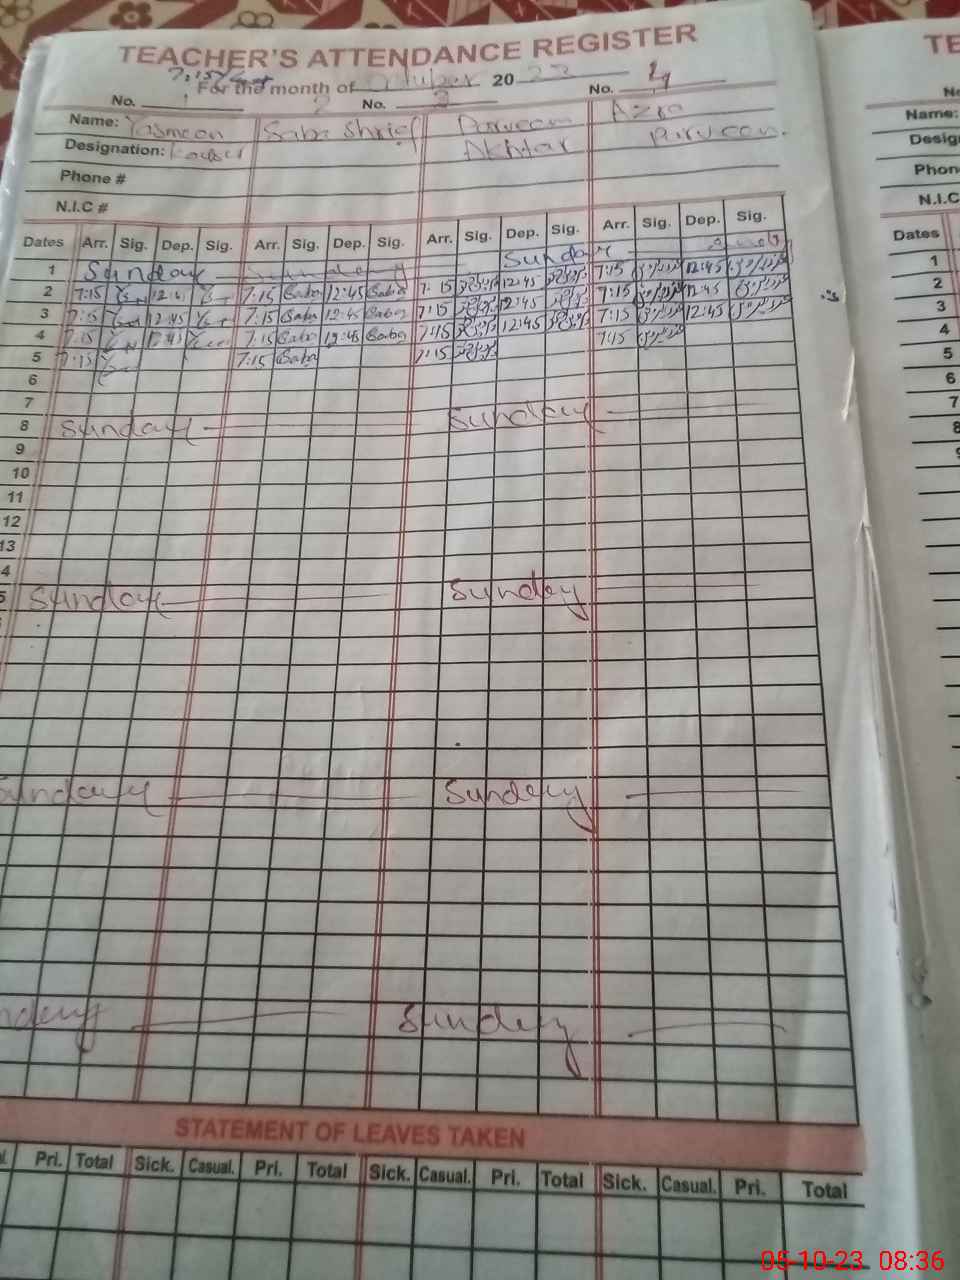 TEACHER'S ATTENDANCE REGISTER TE
7:15
For the month of October 20 23
No. 1 2 No. 3 No. 4 No
Name: Yasmeen Saba Shrief Parveen Azra Name:
Designation: Kousar Akhtar Parveen. Design
Phone # Phone
N.I.C # N.I.C
Dates Arr. Sig. Dep. Sig. Arr. Sig. Dep. Sig. Arr. Sig. Dep. Sig. Arr. Sig. Dep. Sig. Dates
1 Sunday Sunday Sunday 1
2 7:15 12:45 7:15 Saba 12:45 Saba 7:15 12:45 7:15 12:45 2
3 7:15 12:45 7:15 Saba 12:45 Saba 7:15 12:45 7:15 12:45 3
4 7:15 12:45 7:15 Saba 12:45 Saba 7:15 12:45 7:15 4
5 7:15 7:15 Saba 7:15 5
6 6
7 7
8 Sunday Sunday 8
9 9
10
11
12
13
4
5 Sunday Sunday
Sunday Sunday
nday Sunday
STATEMENT OF LEAVES TAKEN
Pri. Total Sick. Casual. Pri. Total Sick. Casual. Pri. Total Sick. Casual. Pri. Total
05-10-23 08:36